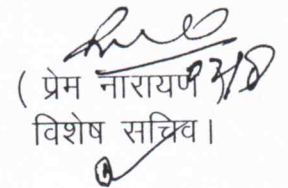 ( प्रेम नारायण )
विशेष सचिव।